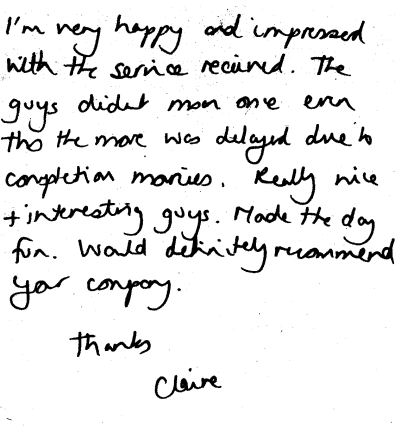 I'm very happy and impressed
with the service received. The
guys didnt moan once even
tho the move was delayed due to
completion monies. Really nice
+ interesting guys. Made the day
fun. Would definitely recommend
your company.
Thanks
Claire